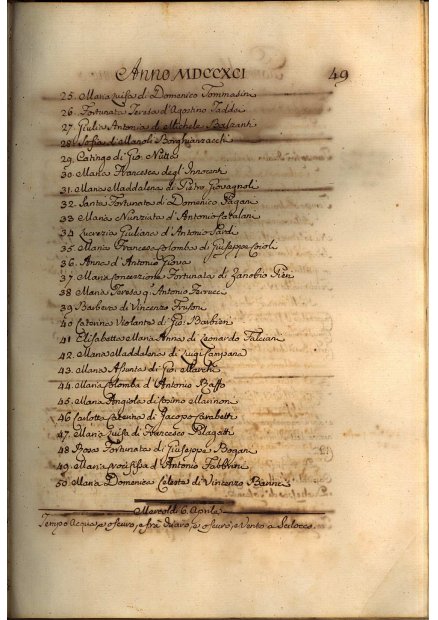 Anno MDCCXCI 49
25. Maria Luisa di Domenico Tommasini
26. Fortunata Teresa d'Agostino Taddei
27. Giulia Antonia di Michele Balzanti
28. Sofia di Manoli
29. Catinga di Gio: Nitta
30. Maria Francesca degl'Innocenti
31. Maria Maddalena di Pietro Giovagnoli
32. Santa Fortunata di Domenico Pagani
33 Maria Nunziata d'Antonio Catalani
34 Lucrezia Giuliana d'Antonio Pardi
35. Maria Francesca Colomba di Giuseppe
36. Anna d'Antonio Giova
37. Maria Concezzione Fortunata di Zanobio
38 Maria Teresa q.m Antonio Ferrucci
39 Barbera di Vincenzo Frusoni
40 Caterina Violante di Gio: Barbieri
41 Elisabetta Maria Anna di Leonardo Falciani
42. Maria Maddalena di Luigi Campana
43. Maria Assunta di Gio: Marchi
44. Maria Colomba d'Antonio Basso
45. Maria Angiola di Mannori
46 Carlotta Caterina di Jacopo
47. Maria Luisa di Francesco Pelagatti
48 Rosa Fortunata di Giuseppe Bogani
49. Maria Crocifissa d'Antonio Fabbrini
50. Maria Domenica Celeste di Vincenzo
Mercoldì 6. Aprile
Tempo Acqua, e oscuro, e oscuro, e vento a Scilocco